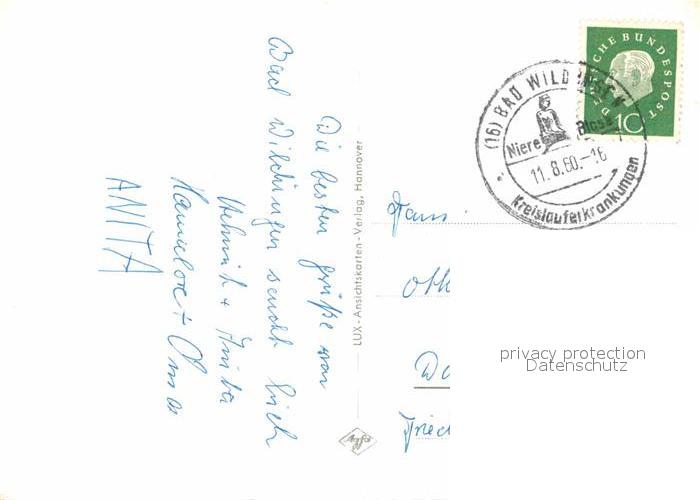 Die besten Grüße von
Bad Wildungen sendet Euch
Heinrich + Anita
Hannelore + Oma
ANITA
LUX-Ansichtskarten-Verlag, Hannover
Agfa
DEUTSCHE BUNDESPOST
10
(16) BAD WILDUNGEN
Niere Blase
11.8.60.-16
Kreislauferkrankungen
Fam
Otto
privacy protection
Datenschutz